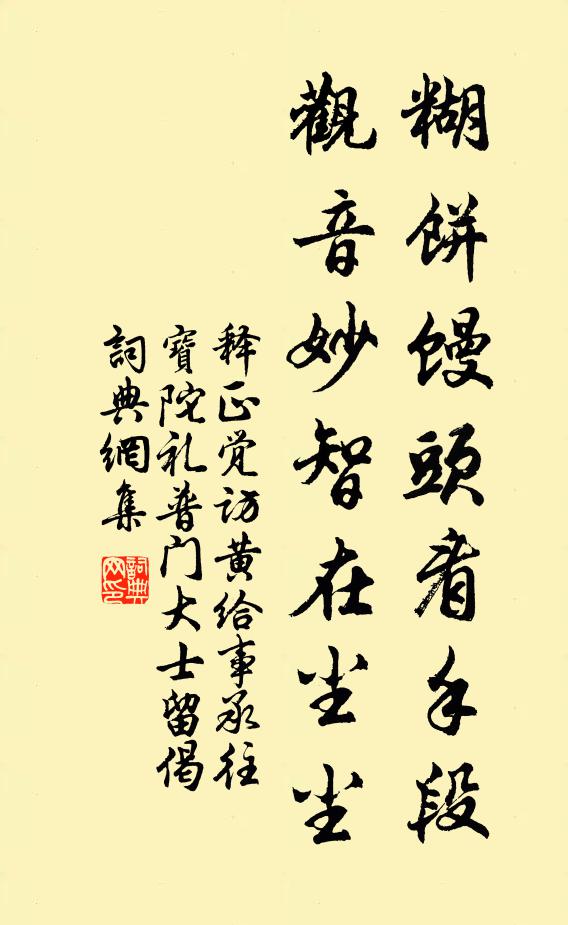 糊餅饅頭看手段
觀音妙智在尘尘
释正觉访黄给事承往
寶陀礼普门大士留偈
詞典網集
詞典网印